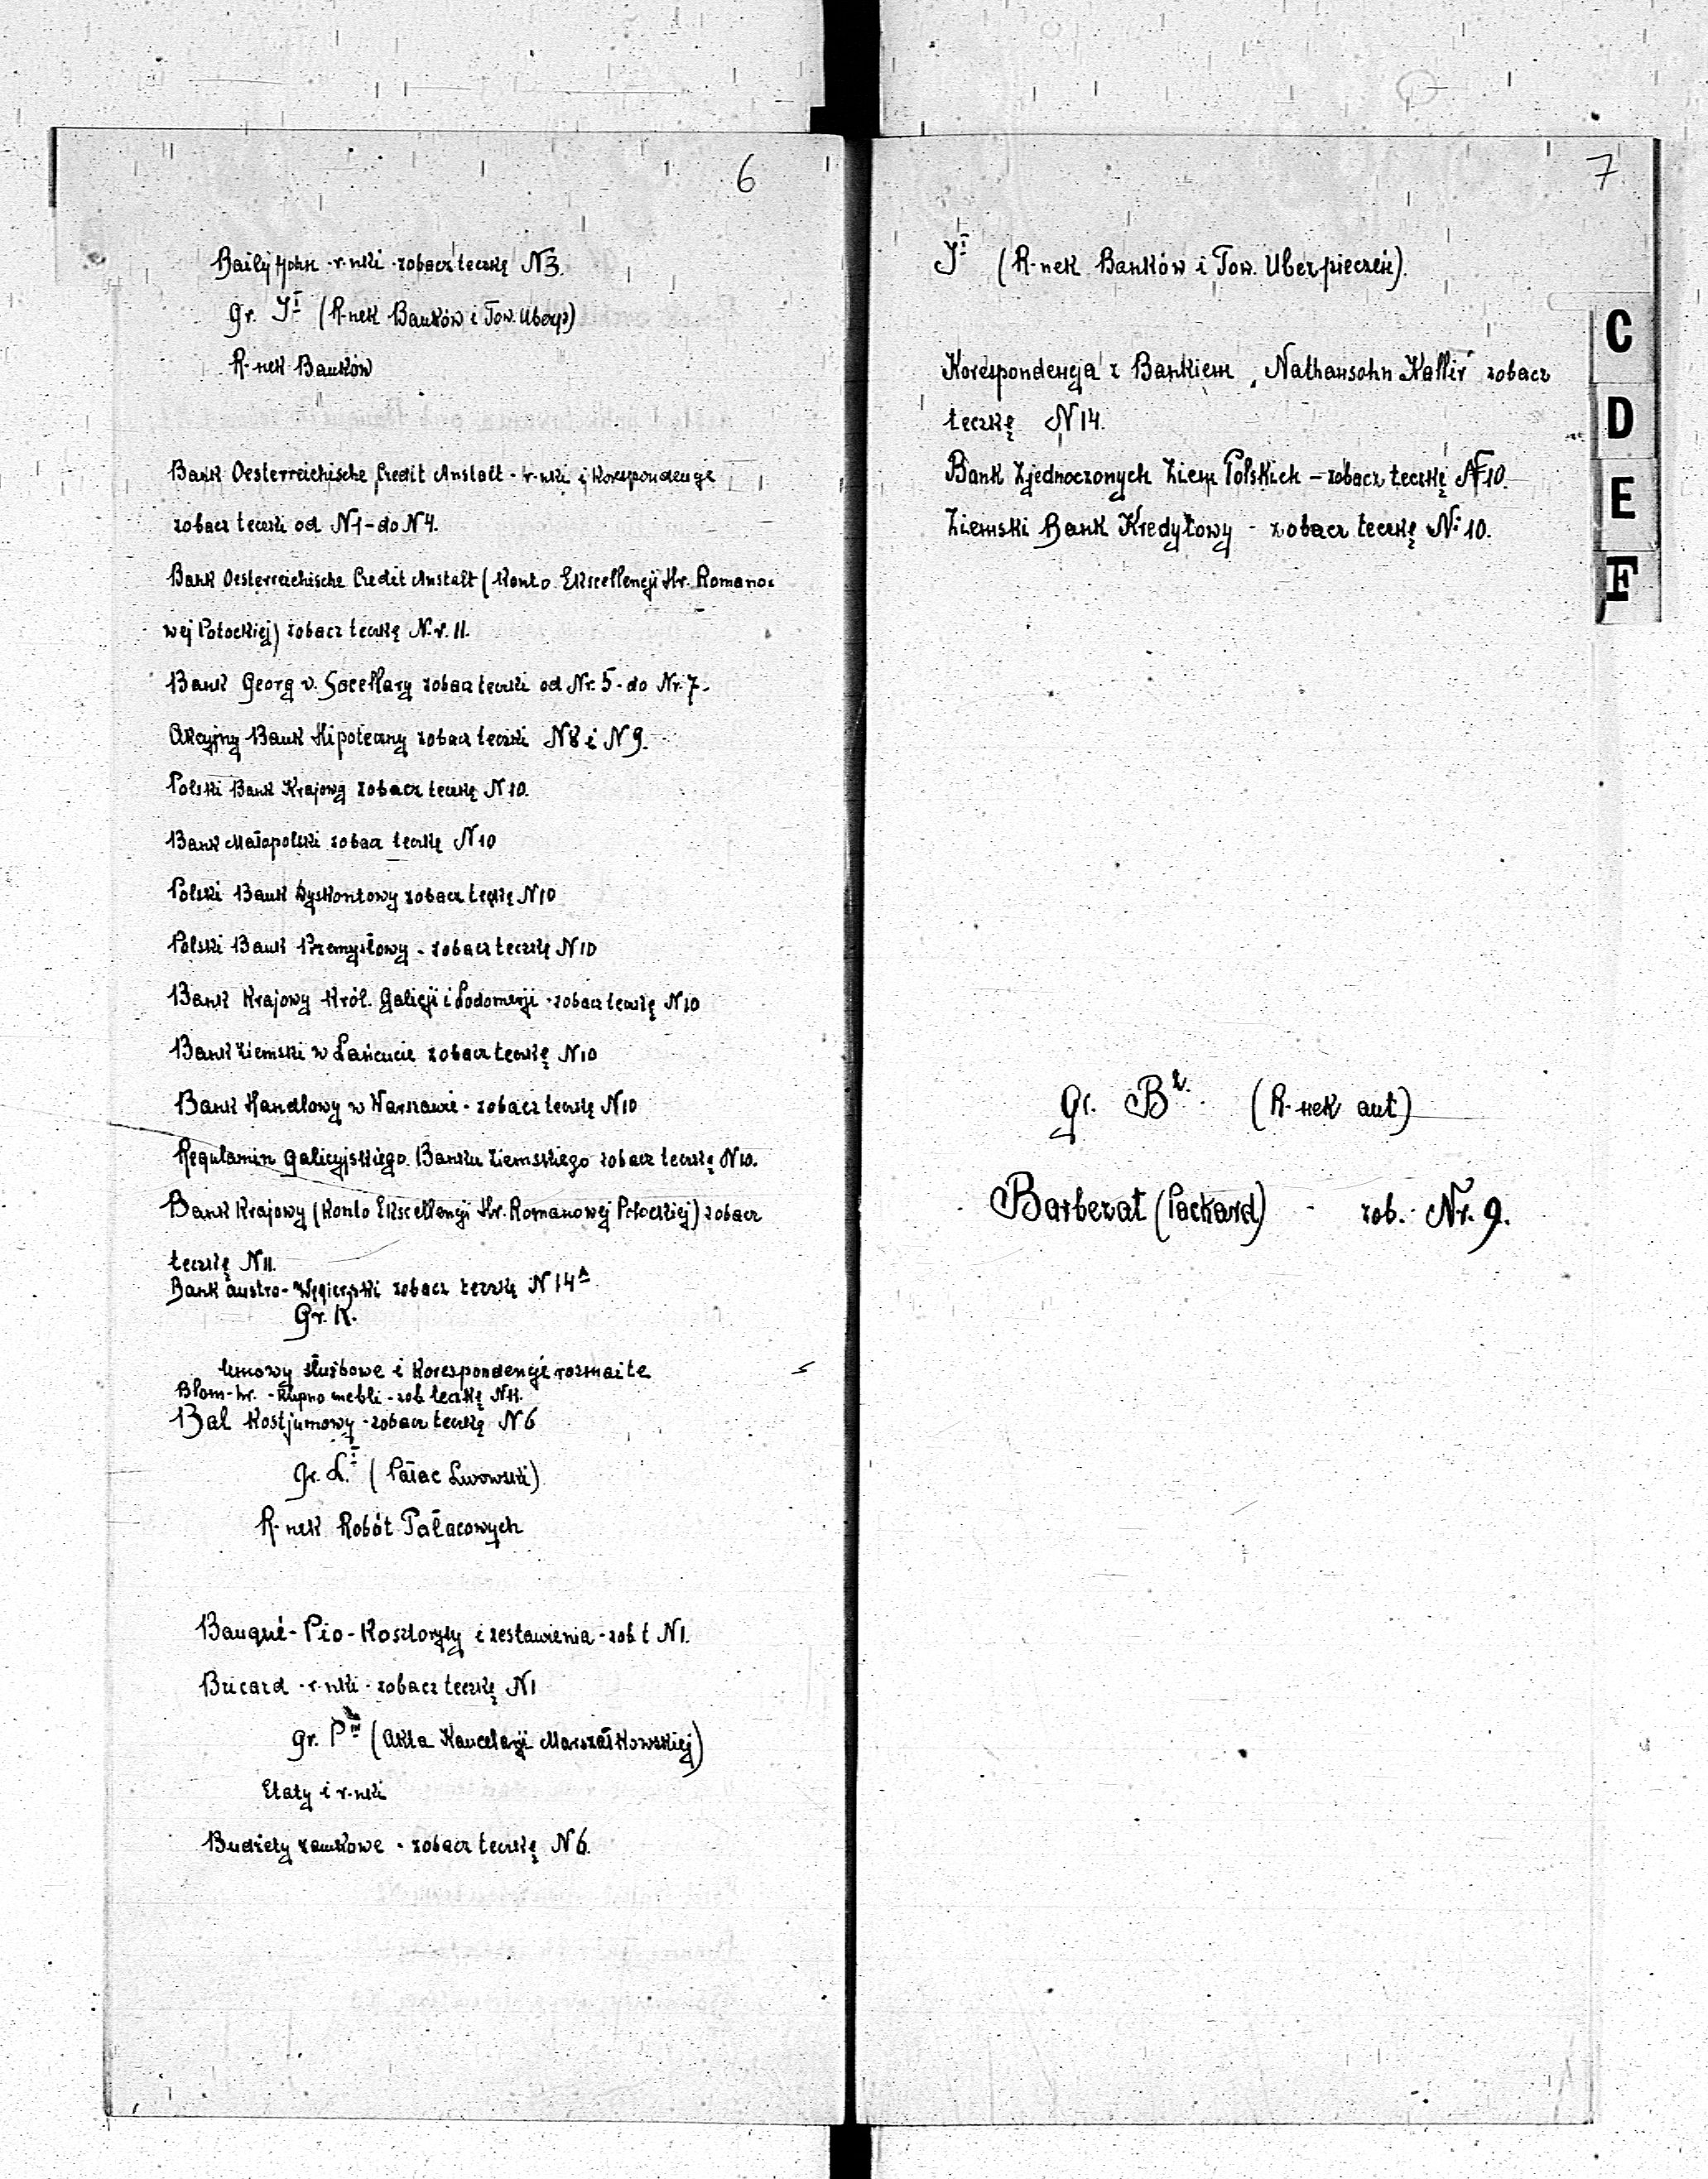 6
Baily John - r-nki - zobacz teczkę N3.
gr. J I (R-nek Banków i Tow. Ubezp)
R-nek Banków
Bank Oesterreichische Credit Anstalt - r-nki i Korespondencje
zobacz teczki od N1 - do N4.
Bank Oesterreichische Credit Anstalt (Konto Ekscellencji Hr. Romano-
wej Potockiej) zobacz teczkę N.r. 11.
Bank Georg v. zobacz teczki od Nr. 5 - do Nr. 7.
Akcyjny Bank Hipoteczny zobacz teczki N8 i N9.
Polski Bank Krajowy zobacz teczkę N10.
Bank Małopolski zobacz teczkę N10
Polski Bank Dyskontowy zobacz teczkę N10
Polski Bank Przemysłowy - zobacz teczkę N10
Bank Krajowy Król. Galicji i Lodomerji - zobacz teczkę N10
Bank Ziemski w Łańcucie zobacz teczkę N10
Bank Handlowy w Warszawie - zobacz teczkę N10
Regulamin Galicyjskiego Banku Ziemskiego zobacz teczkę N10.
Bank Krajowy (Konto Ekscellencji Hr. Romanowej Potockiej) zobacz
teczkę N11.
Bank austro-Węgierski zobacz teczkę N14A
Gr. K.
Umowy służbowe i Korespondencje rozmaite
Blom-hr. - Kupno mebli - zob teczkę N11.
Bal Kostjumowy - zobacz teczkę N6
gr. L. I (Pałac Lwowski)
R-nek Robót Pałacowych
Bauqué - Pio - Kosztorysy i zestawienia - zob. t N1.
Bricard - r-nki - zobacz teczkę N1
gr. P III (Akta Kancelarji Marszałkowskiej)
Etaty i r-nki
Budżety zamkowe - zobacz teczkę N6.
7
J I (R-nek Banków i Tow. Ubezpieczeń).
Korespondencja z Bankiem „Nathansohn Kallir" zobacz
teczkę N14.
Bank Zjednoczonych Ziem Polskich - zobacz teczkę N10.
Ziemski Bank Kredytowy - zobacz teczkę N: 10.
gr. B 2. (R-nek aut)
Barbezat (Packard) - zob. Nr. 9.
C
D
E
F